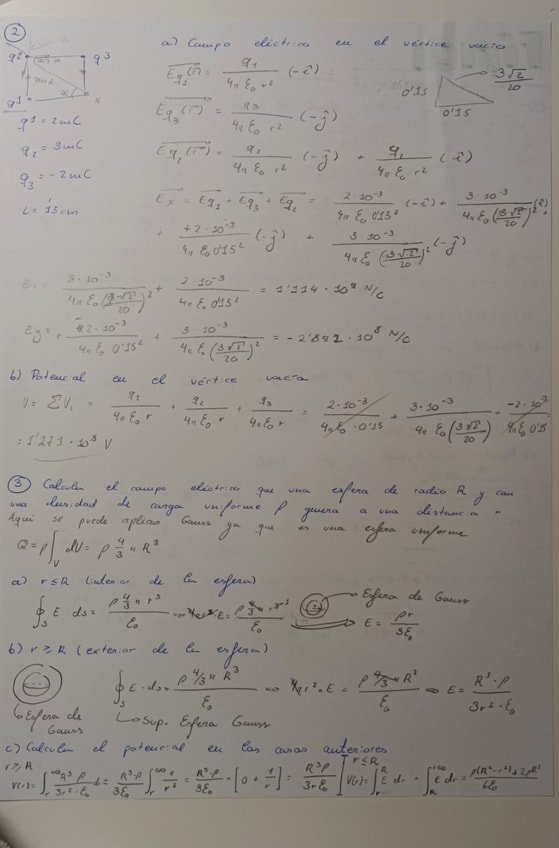 2
a) Campo eléctrico en el vértice vacío
q2 q3
q1 x
α
Eq1(r) = q1 / 4π ε0 r² (-i)
0'15 3√2/20
0'15
q1 = 2mC
Eq3(r) = q3 / 4π ε0 r² (-j)
q2 = 3mC
Eq2(r) = q2 / 4π ε0 r² (-j) + q2 / 4π ε0 r² (-i)
q3 = -2mC
L = 15cm
Ex = Eq1 + Eq3 + Eq2 = 2·10⁻³ / 4π ε0 0'15² (-i) + 3·10⁻³ / 4π ε0 (3√2/20)² (i) +
+ +2·10⁻³ / 4π ε0 0'15² (-j) + 3·10⁻³ / 4π ε0 (3√2/20)² (-j)
3·10⁻³ / 4π ε0 (3√2/20)² + 2·10⁻³ / 4π ε0 0'15² = 1'114·10⁹ N/C
2·10⁻³ / 4π ε0 0'15² + 3·10⁻³ / 4π ε0 (3√2/20)² = 10⁸ N/C
b) Potencial en el vértice vacío
V = ΣVi = q1 / 4π ε0 r + q2 / 4π ε0 r + q3 / 4π ε0 r = 2·10⁻³ / 4π ε0 · 0'15 + 3·10⁻³ / 4π ε0 (3√2/20) + -2·10⁻³ / 4π ε0 0'15
= 1'271·10⁸ V
3 Calcular el campo eléctrico que una esfera de radio R y con
una densidad de carga uniforme ρ genera a una distancia r
Aquí se puede aplicar Gauss ya que es una esfera uniforme
Q = ρ ∫V dV = ρ 4/3 π R³
a) r ≤ R (interior de la esfera)
∮S E·ds = ρ 4/3 π r³ / ε0 E = ρ 4/3 π r³ / ε0
Esfera de Gauss
E = ρr / 3ε0
b) r ≥ R (exterior de la esfera)
∮S E·ds = ρ 4/3 π R³ / ε0 ⇒ 4πr²·E = ρ 4/3 π R³ / ε0 ⇒ E = R³·ρ / 3r²·ε0
Esfera de Gauss
Sup. Esfera Gauss
c) Calcular el potencial en los casos anteriores
r ≥ R
V(r) = ∫r^∞ R³ρ / 3r²·ε0 = R³ρ / 3ε0 ∫r^∞ 1/r² = R³ρ / 3ε0 · [0 + 1/r] = R³ρ / 3rε0
r ≤ R
V(r) = ∫r^R E dr + ∫R^∞ E dr = ρ(R²-r²)+2ρR² / 6ε0